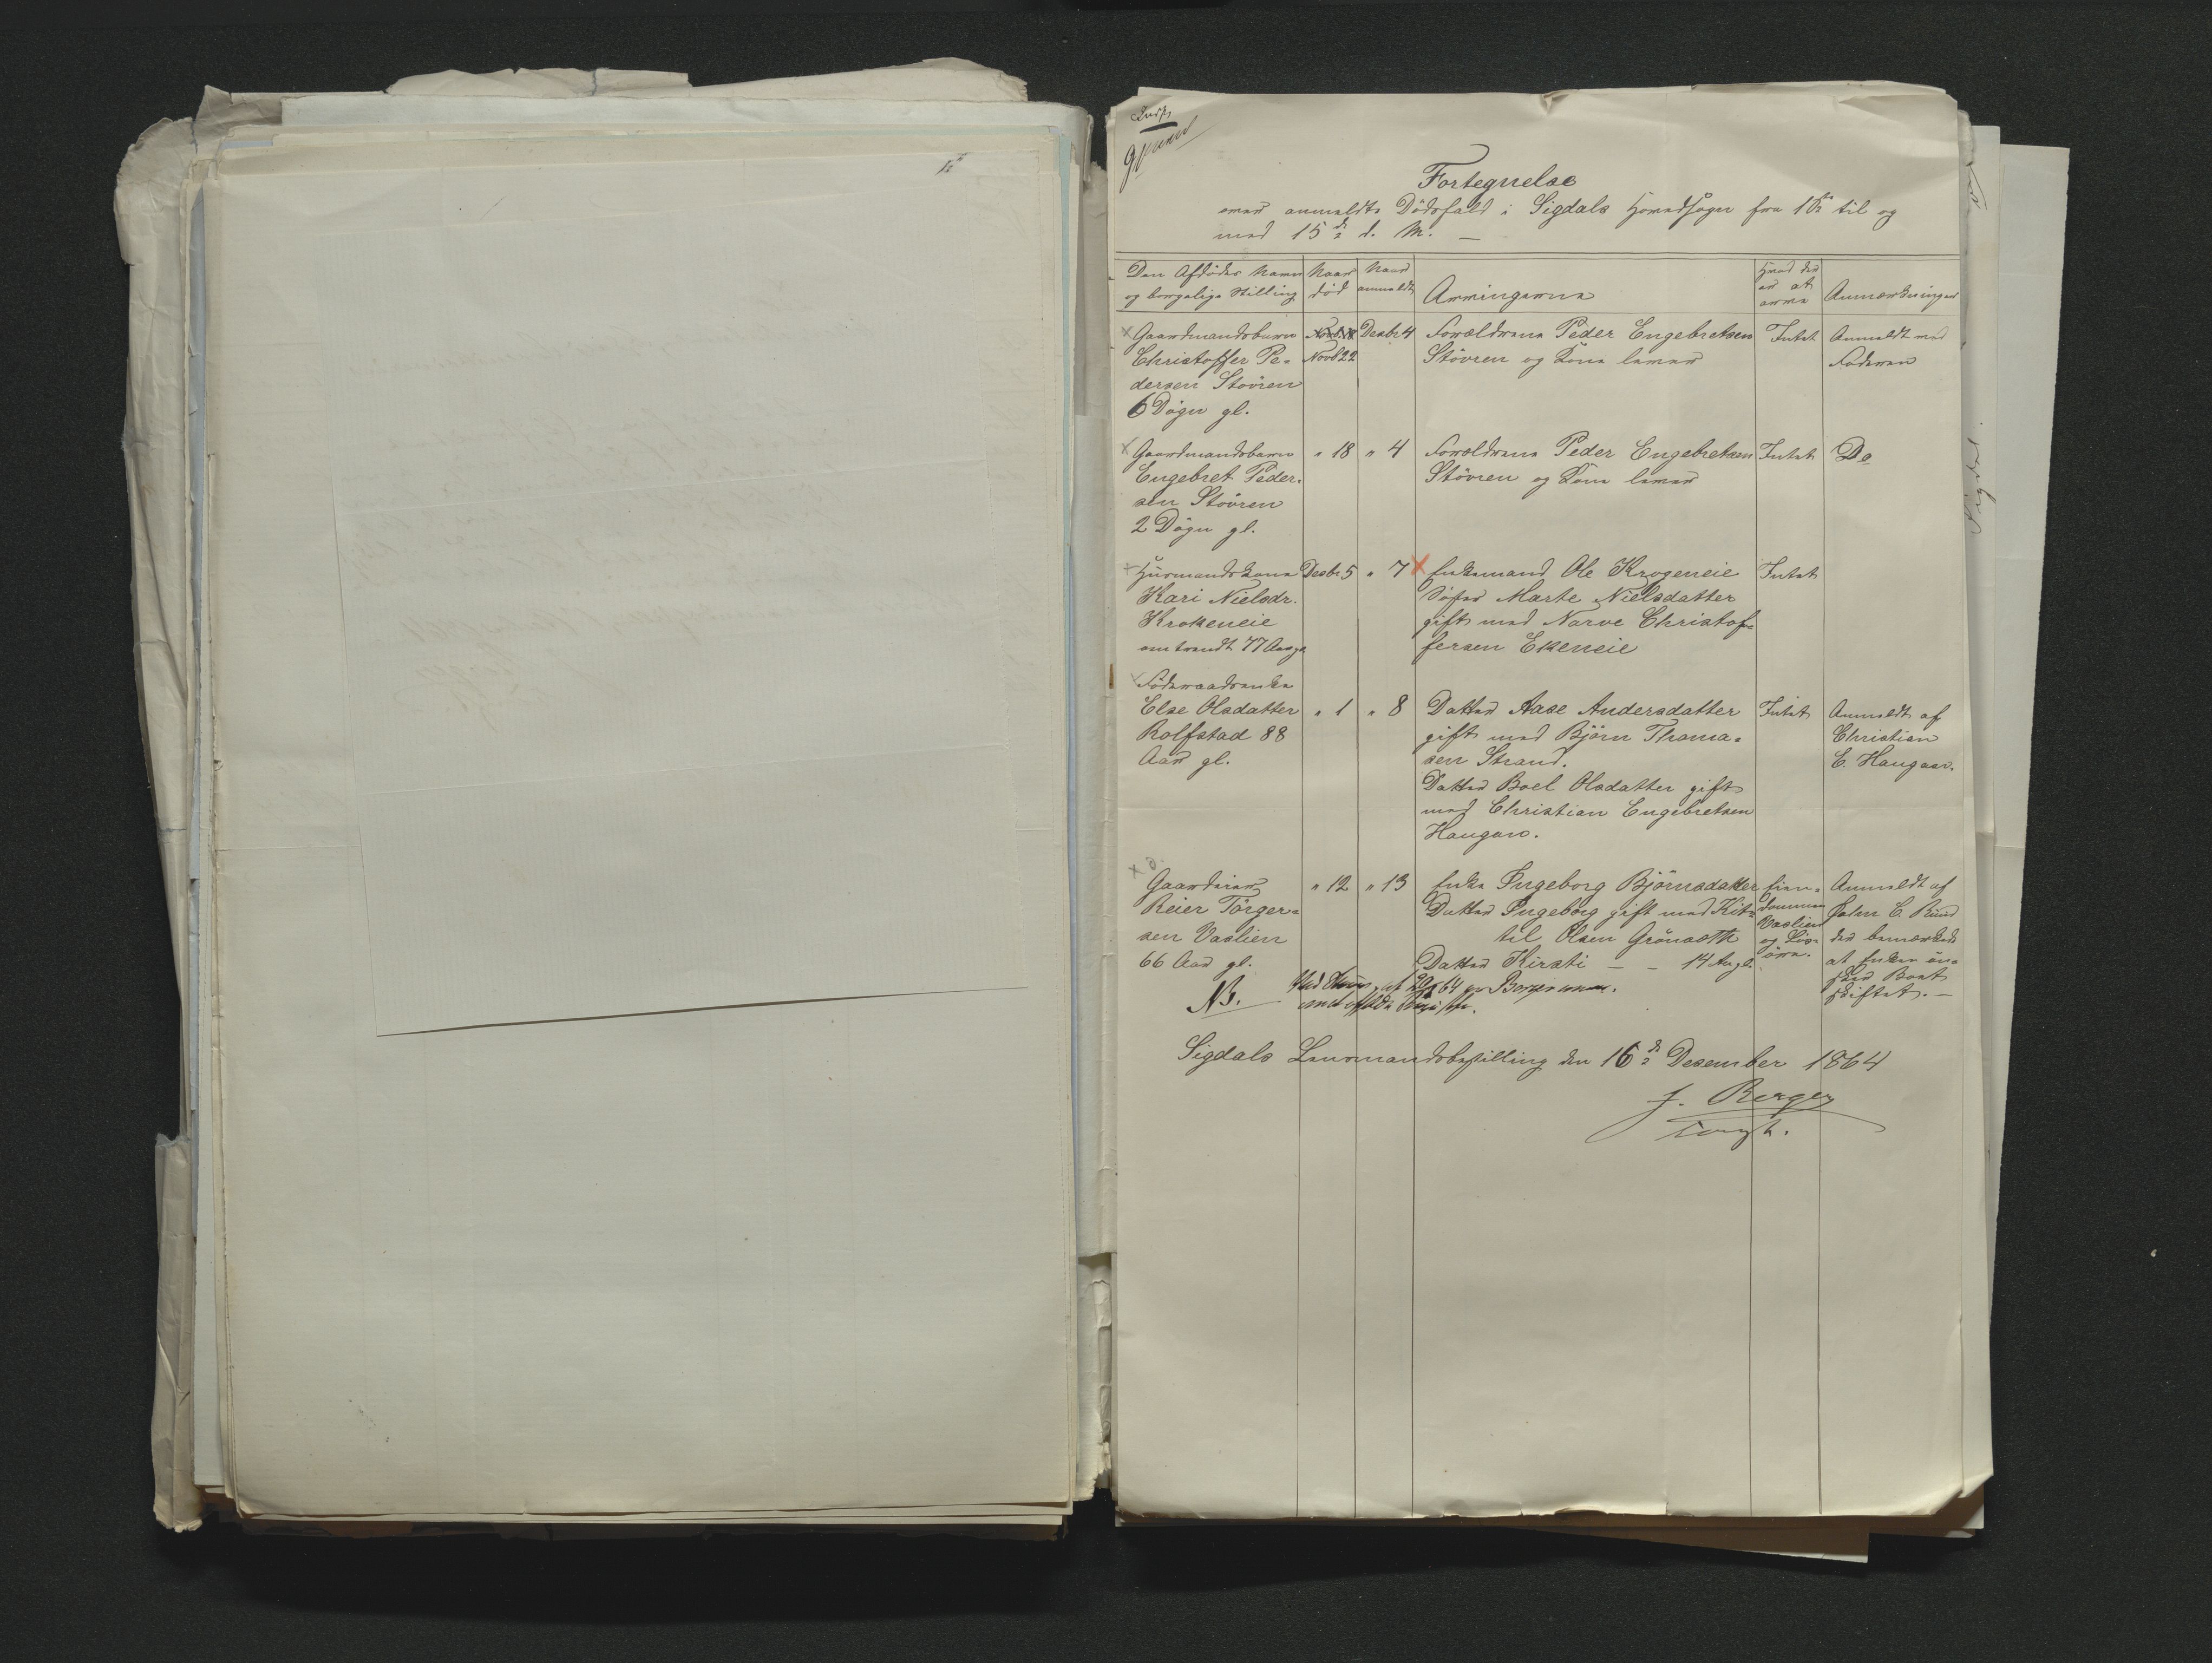 Fortegnelse
over anmeldte Dödsfald i Sigdals Hovedsogn fra 1ste til og
med 15de d. M. —
Den Afdödes Navn
og borgelige Stilling
Naar
död
Naar
anmeldt
Arvingerne
Hvad der
er at
arve
Anmærkninger
Gaardmandsbarn
Christoffer Pe-
dersen Stövren
6 Dögn gl.
Novb 22
Decbr 4
Forældrene Peder Engebretsen
Stövren og Kone lever
Intet
Anmeldt ved
Faderen
Gaardmandsbarn
Engebret Peder-
sen Stövren
2 Dögn gl.
" 18
" 4
Forældrene Peder Engebretsen
Stövren og Kone lever
Intet
Do
Huusmandskone
Kari Nielsdr.
Krokeneie
omtrendt 77 Aar gl
Decbr 5
" 7
Enkemand Ole Krogeneie
Söster Marte Nielsdatter
gift med Narve Christof-
fersen Ekeneie
Intet
Föderaadsenke
Else Olsdatter
Rolfstad 88
Aar gl.
" 1
" 8
Datter Aase Andersdatter
gift med Björn Thoma-
sen Strand.
Datter Boel Olsdatter gift
med Christian Engebretsen
Haugan.
Intet
Anmeldt af
Christian
E. Haugan.
Gaardeier
Reier Törger-
sen Vaslien
66 Aar gl.
" 12
" 13
Enke Ingeborg Björnsdatter
Datter Ingeborg gift med Kit-
til Olsen Grönseth
Datter Kirsti — — 14 Aar gl.
Eien-
dommen
Vaslien
og Lös-
öre.
Anmeldt af
John C. Ruud
der bemærkede
at Enken ön-
sker Boet
skiftet. —
NB.
Sigdals Lensmandsbestilling den 16de Desember 1864
J. Berger